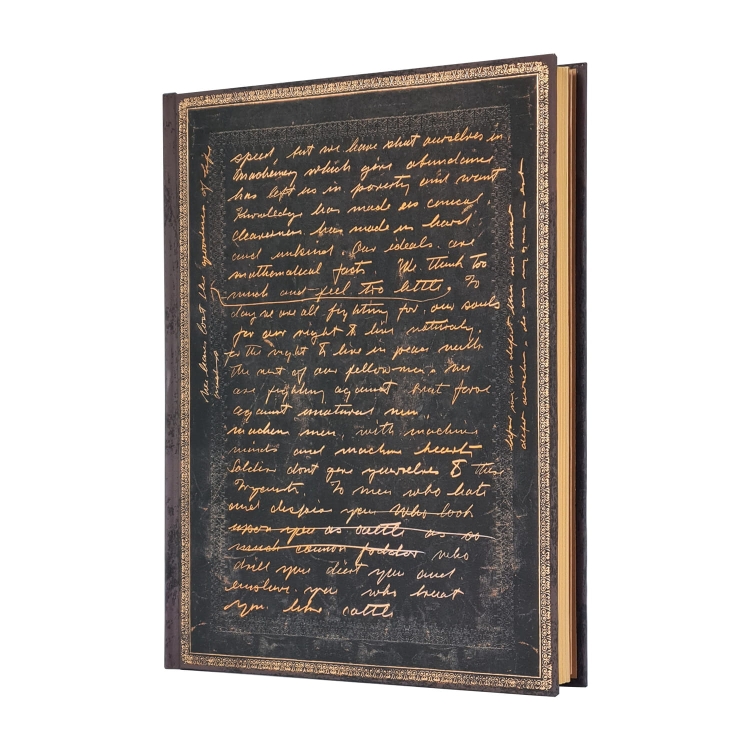 speed but we have shut ourselves in
Machinery which gives abundance
has left us in poverty and want
Knowledge has made us cynical
cleverness has made us hard
and unkind. Our ideals are
mathematical facts. We think too
much and feel too little. To
day we are all fighting for our souls
for our right to live naturally
for the right to live in peace with
the rest of our fellow men. We
are fighting against brut force
against unatural men
machine men, with machine
minds and machine hearts
Soldiers dont give yourselves to these
To men who hate
and despise you who look
upon you as cattle as so
much cannon fodder who
drill you diert you and
enslave you who treat
you like cattle
We have lost the of life